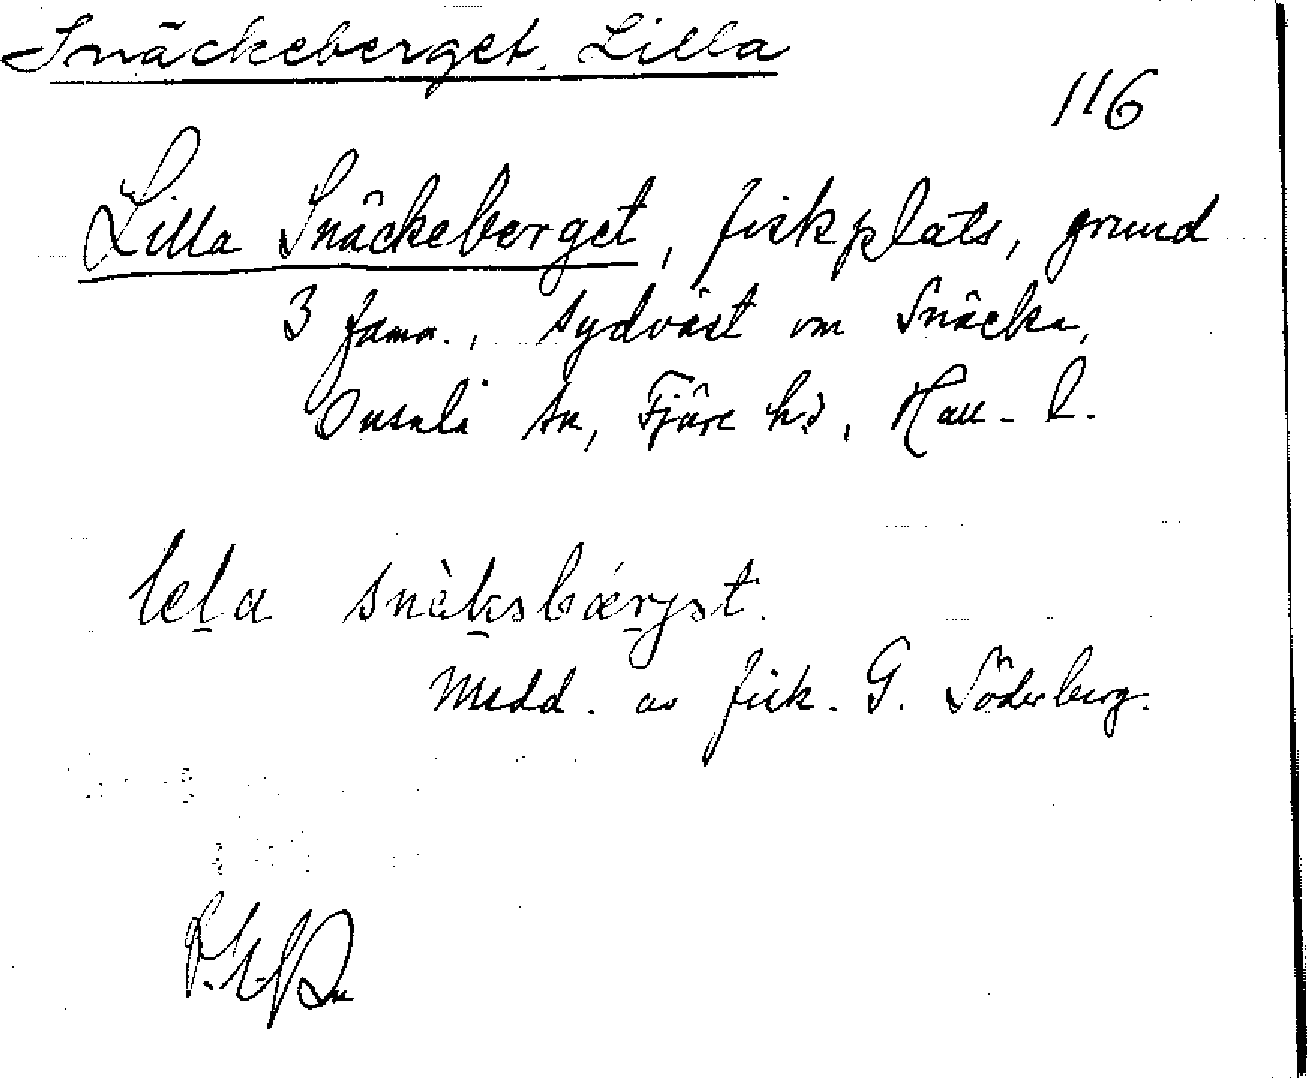 Snäckeberget, Lilla
116
Lilla Snäckeberget, fiskplats, grund
3 famn., sydväst om Snäcka,
Onsala sn, Fjäre hd, Hall. l.
lela snäksbærjst.
Medd. av fisk. G. Söderberg.